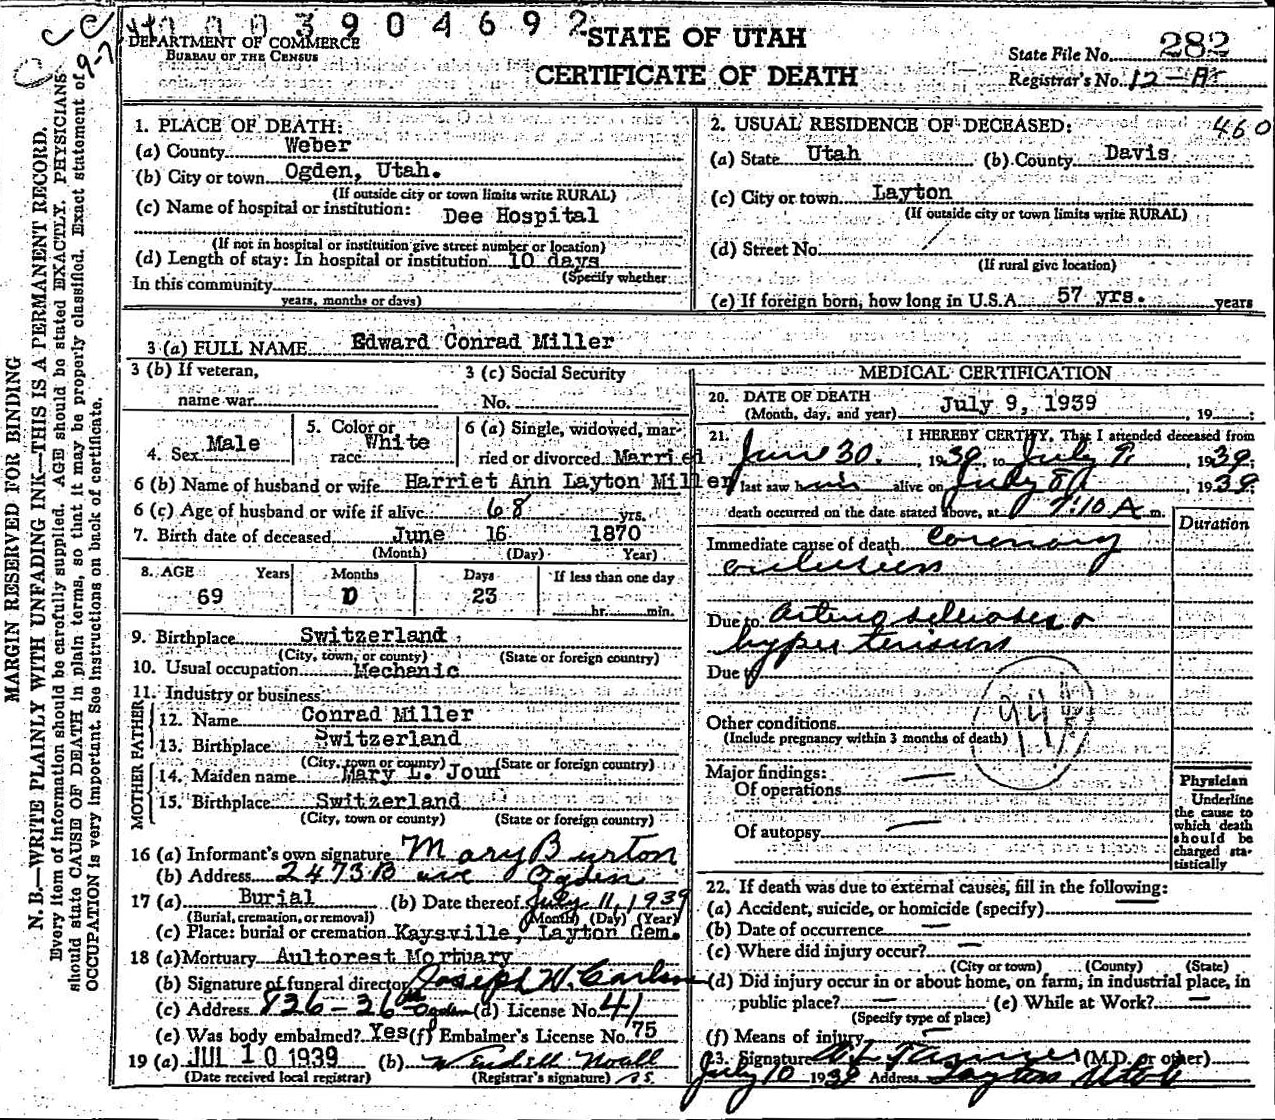 C C C 9-7
003904692
DEPARTMENT OF COMMERCE
BUREAU OF THE CENSUS
STATE OF UTAH
CERTIFICATE OF DEATH
State File No. 282
Registrar's No. 12-A
MARGIN RESERVED FOR BINDING
N. B.—WRITE PLAINLY WITH UNFADING INK—THIS IS A PERMANENT RECORD.
Every item of information should be carefully supplied. AGE should be stated EXACTLY. PHYSICIANS
should state CAUSE OF DEATH in plain terms, so that it may be properly classified. Exact statement of
OCCUPATION is very important. See instructions on back of certificate.
1. PLACE OF DEATH:
(a) County Weber
(b) City or town Ogden, Utah.
(If outside city or town limits write RURAL)
(c) Name of hospital or institution: Dee Hospital
(If not in hospital or institution give street number or location)
(d) Length of stay: In hospital or institution 10 days
(Specify whether
In this community
years, months or days)
2. USUAL RESIDENCE OF DECEASED: 460
(a) State Utah (b) County Davis
(c) City or town Layton
(If outside city or town limits write RURAL)
(d) Street No.
(If rural give location)
(e) If foreign born, how long in U.S.A. 57 yrs. years
3 (a) FULL NAME Edward Conrad Miller
3 (b) If veteran,
name war
3 (c) Social Security
No.
4. Sex Male
5. Color or
race White
6 (a) Single, widowed, mar-
ried or divorced Married
6 (b) Name of husband or wife Harriet Ann Layton Miller
6 (c) Age of husband or wife if alive 68 yrs.
7. Birth date of deceased June 16 1870
(Month) (Day) Year)
8. AGE Years Months Days If less than one day
69 0 23 hr. min.
9. Birthplace Switzerland
(City, town, or county) (State or foreign country)
10. Usual occupation Mechanic
11. Industry or business
FATHER
12. Name Conrad Miller
13. Birthplace Switzerland
(City, town or county) (State or foreign country)
MOTHER
14. Maiden name Mary L. Joun
15. Birthplace Switzerland
(City, town or county) (State or foreign country)
16 (a) Informant's own signature Mary Burton
(b) Address 2473 B ave Ogden
17 (a) Burial (b) Date thereof July 11, 1939
(Burial, cremation, or removal) (Month) (Day) (Year)
(c) Place: burial or cremation Kaysville, Layton Cem.
18 (a) Mortuary Aultorest Mortuary
(b) Signature of funeral director Joseph W. Carlson
(c) Address 836-36th Ogden (d) License No. 41
(e) Was body embalmed? Yes (f) Embalmer's License No. 75
19 (a) JUL 10 1939 (b) Wendell Noall
(Date received local registrar) (Registrar's signature)
MEDICAL CERTIFICATION
20. DATE OF DEATH
(Month, day, and year) July 9, 1939, 19 :
21. I HEREBY CERTIFY, That I attended deceased from
June 30, 1939, to July 9, 1939;
I last saw him alive on July 8, 1939
death occurred on the date stated above, at 9:10 A m.
Duration
Immediate cause of death Coronary
occlusion
Due to Arteriosclerosis &
hypertension
Due to
94
Other conditions
(Include pregnancy within 3 months of death)
Major findings:
Of operations
Of autopsy
Physician
Underline
the cause to
which death
should be
charged sta-
tistically
22. If death was due to external causes, fill in the following:
(a) Accident, suicide, or homicide (specify)
(b) Date of occurrence
(c) Where did injury occur?
(City or town) (County) (State)
(d) Did injury occur in or about home, on farm, in industrial place, in
public place? (e) While at Work?
(Specify type of place)
(f) Means of injury
23. Signature (M.D. or other)
July 10 1939 Address Layton Utah